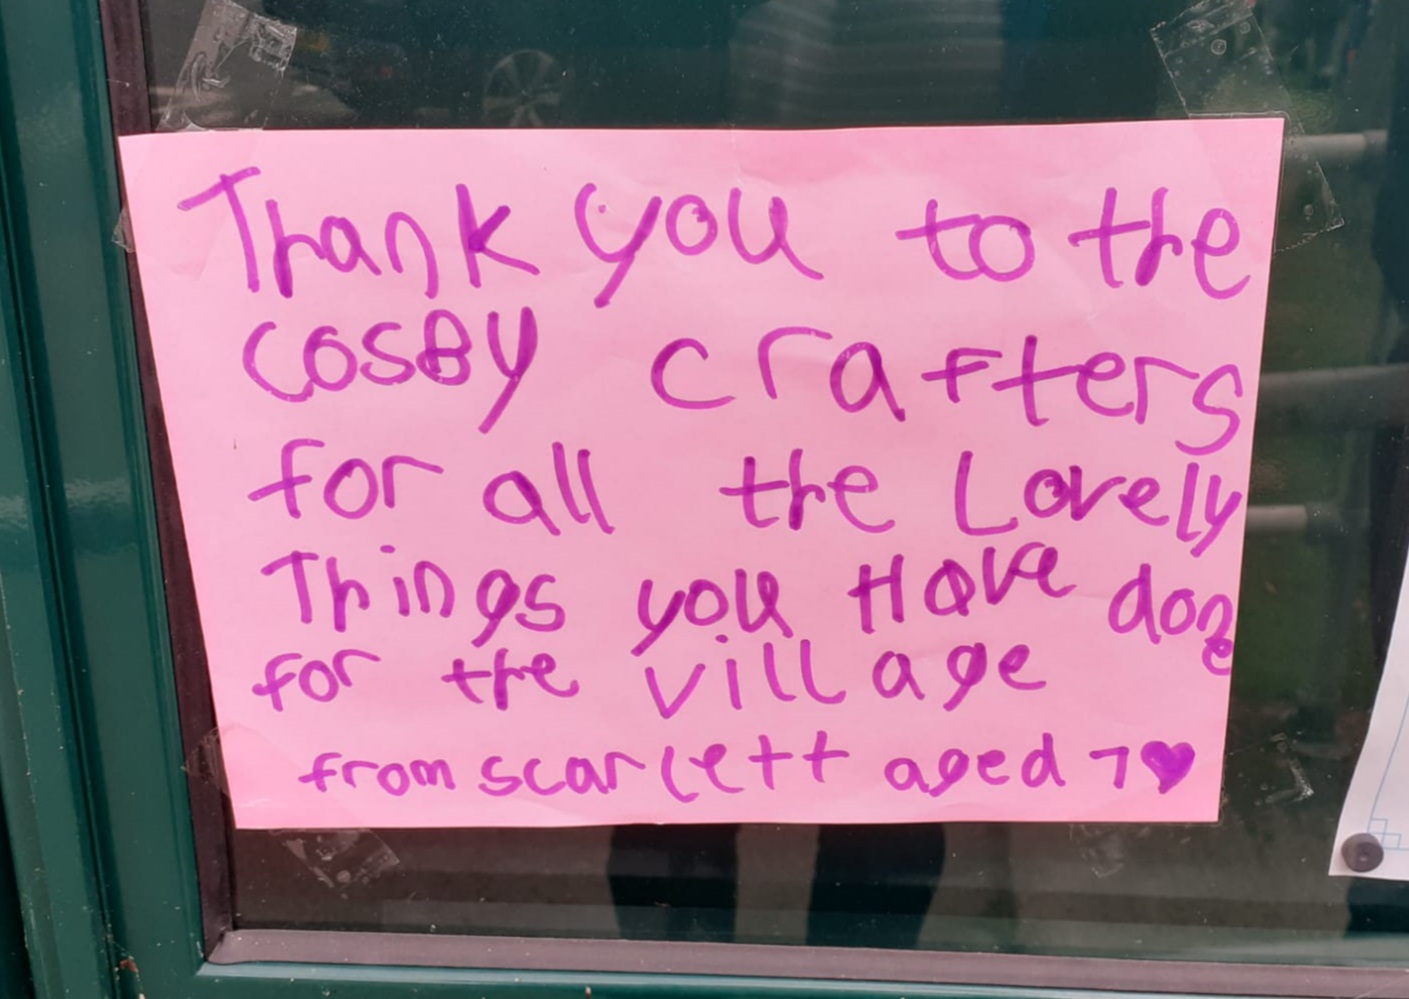 Thank you to the
cosBy crafters
for all the Lovely
Things you Have done
for the village
from scarlett aged 7 ♥